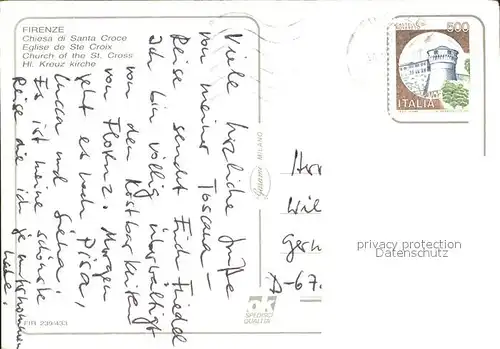 FIRENZE
Chiesa di Santa Croce
Eglise de Ste Croix
Church of the St. Cross
Hl. Kreuz kirche
500
ITALIA
Viele herzliche Grüße
von meiner Toscana –
Reise sendet Euch Friedel
Ich bin völlig überwältigt
von den Kostbarkeiten
von Florenz. Morgen
geht es nach Pisa,
Lucca und Siena.
Es ist meine schönste
Reise die ich je unternommen
habe.
MILANO
Herr
Wil
Ger
D-67.
privacy protection
Datenschutz
SPEDISCI
QUALITÀ
FIR 239/433